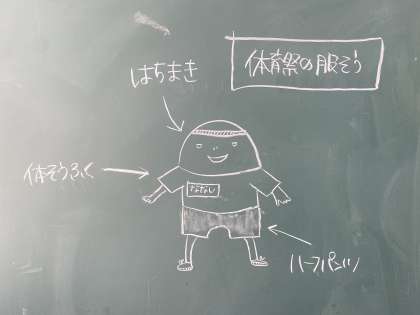 体育祭の服そう
はちまき
体そうふく
ななし
ハーフパンツ